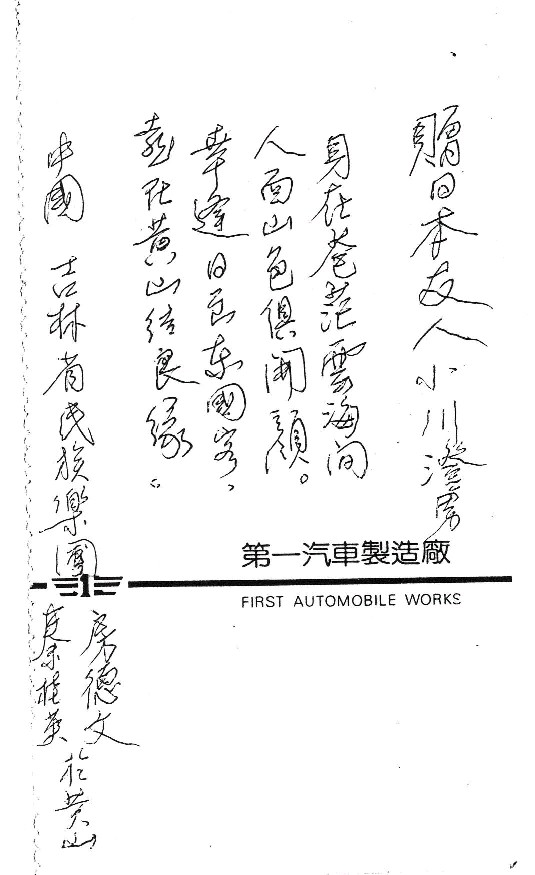 贈日本友人小川澄男
身在苍茫雲海间
人面山色俱開顔。
幸逢日东國客，
喜在黄山结良缘。
中國 吉林省民族樂團
席德文
秦桂英
於黄山
第一汽車製造廠
FIRST AUTOMOBILE WORKS